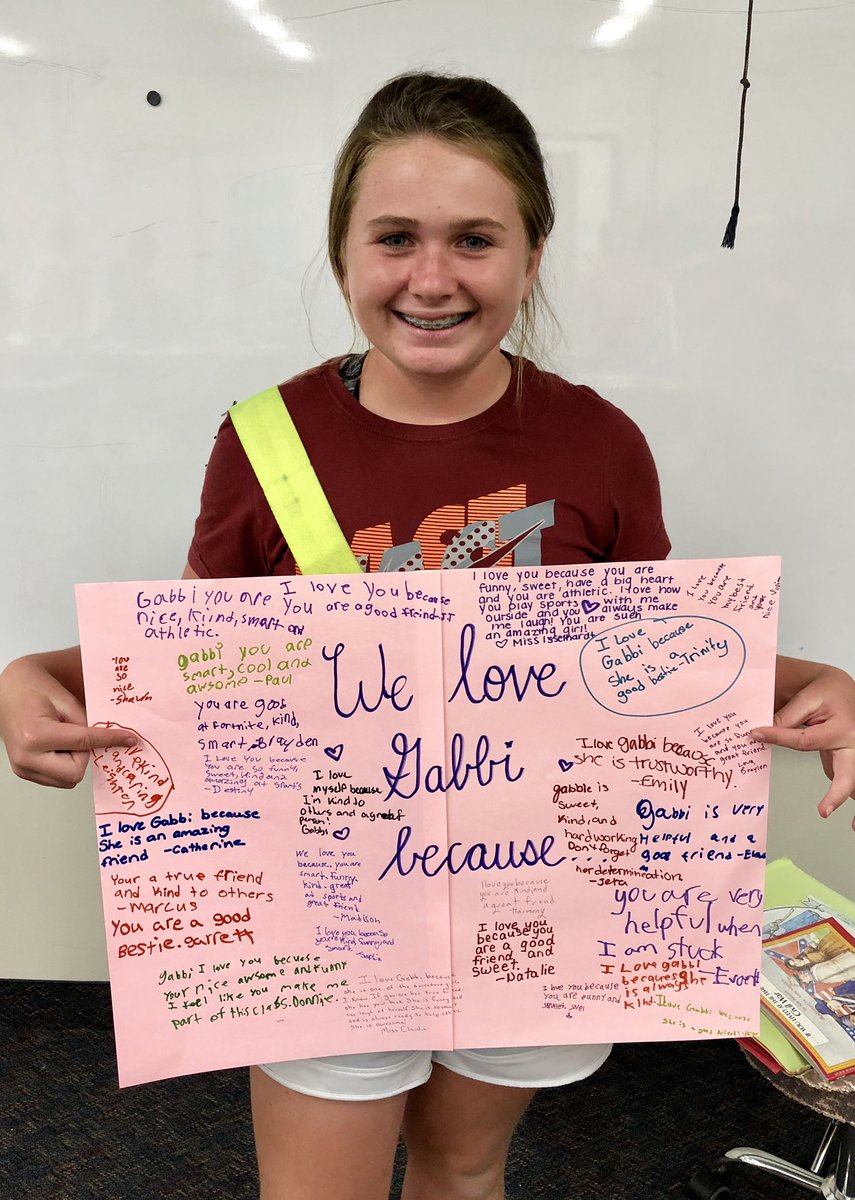 Gabbi you are
nice, kind, smart and
athletic.
I love you because
you are a good friend JJ
I love you because you are
funny, sweet, have a big heart
and you are athletic. I love how
you play sports with me
ourside and you always make
me laugh! You are such
an amazing girl!
Miss Isselhardt
I love
you because
you are
my best
friend
and
nice
you
are
so
nice
-Shawn
gabbi you are
smart, cool and
awsome - Paul
We love
Gabbi
because...
I Love
Gabbi because
she is a
good bestie-Trinity
you are good
at fortnite, kind,
smart - Brayden
I Love you because
you are so funny,
sweet, kind and
amazing at sports
- Destiny
I love
myself because
I'm kind to
others and a great
person!
Gabbi
kind
and caring
I love gabbi because
she is trustworthy.
-Emily
I love you
because you
are so funny
and you are
great friend.
Love,
Braylen
gabbie is
sweet,
kind, and
hardworking
Don't forget
her determination.
-Jeta
Gabbi is very
Helpful and a
good friend
I love Gabbi because
She is an amazing
friend -Catherine
We love you
because you are
smart, funny,
kind, great
at sports and
great friend
- Madison
Your a true friend
and kind to others
- Marcus
You are a good
Bestie. garrett
I love you because
you are kind and
a great friend
- Harmony
you are very
helpful when
I am stuck
-Everett
I love you because
you're kind, funny and
smart.
-Sophia
I love
you because
you are a good
friend, and
sweet.
- Natalie
gabbi I love you because
your nice awsome and funny
I feel like you make me
part of this class. Donnie.
I love Gabbi, because
she is one of the
She is awesome!
Miss Claudia
I love you because
you are funny and
sweet
I Love gabbi
because she
is always
kind.
I love Gabbi because
she is a good friend!
...IF YOU LIVED AT THE TIME OF THE
Civil War